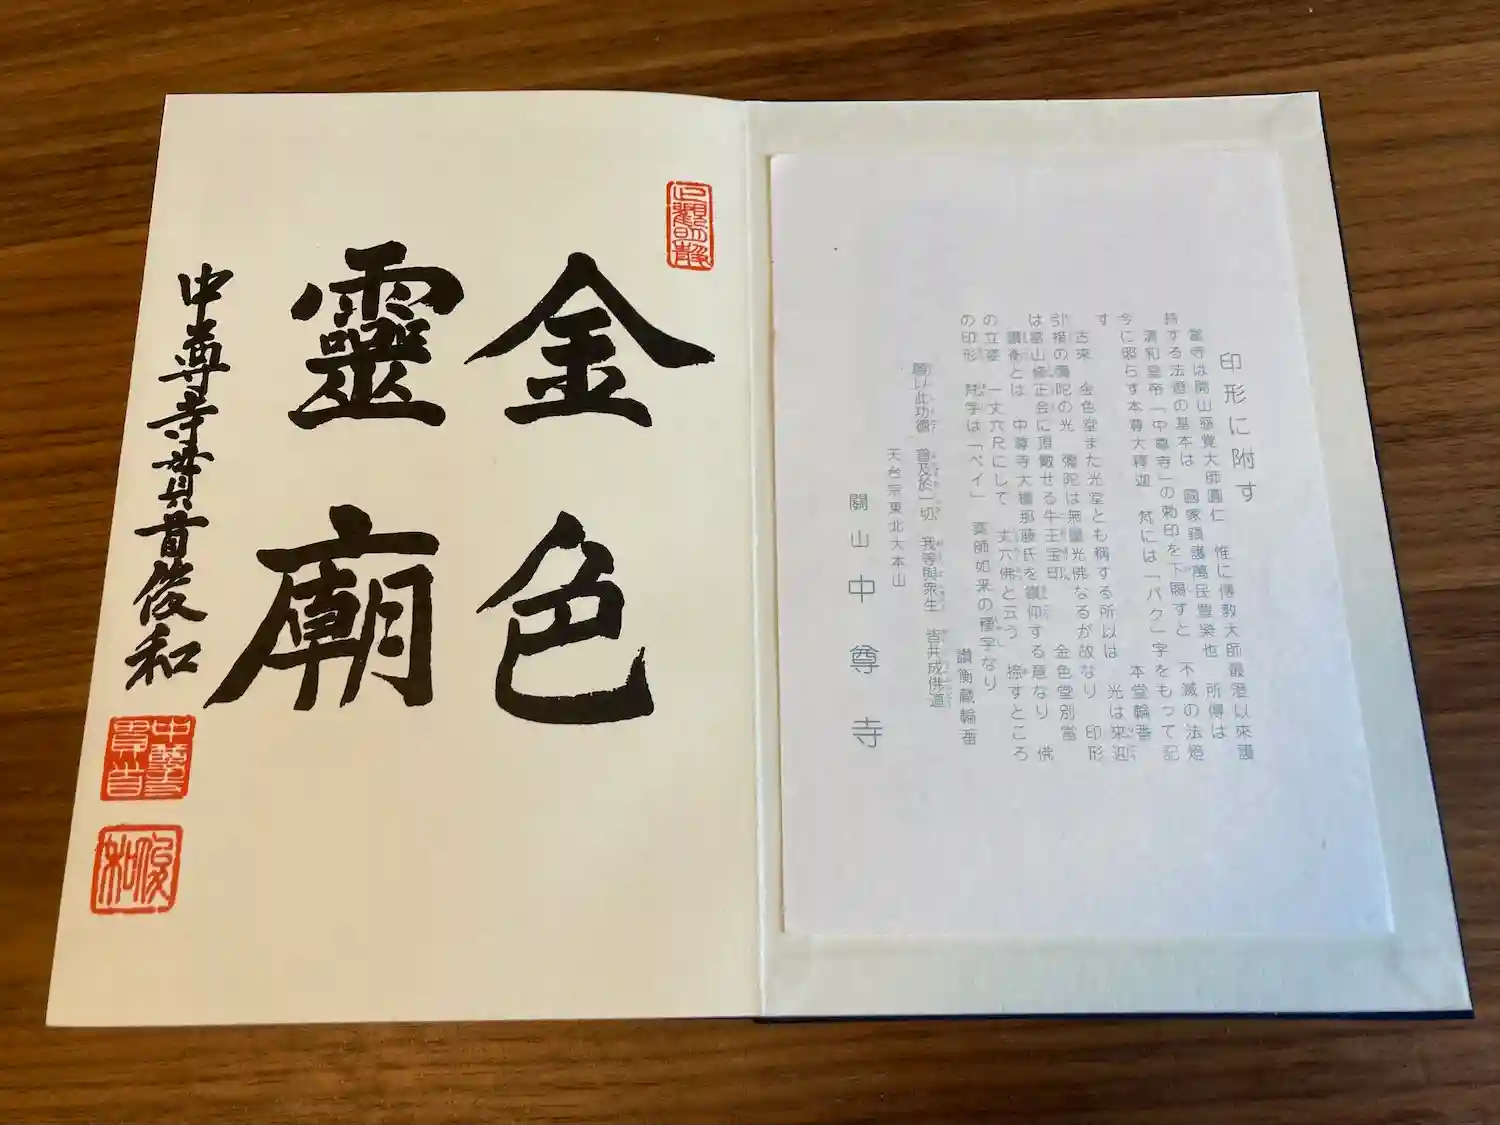 印形に附す
當寺は開山慈覺大師圓仁 惟に傳教大師最澄以來護
持する法燈の基本は 國家鎮護萬民豊樂也 所得は
清和皇帝「中尊寺」の勅印を下賜すと 不滅の法燈
今に昭らす本尊大釋迦 梵には「バク」字をもって記
す 本堂輪番
古来 金色堂また光堂とも稱する所以は 光は來迎
引接の彌陀の光 彌陀は無量光佛なるが故なり 印形
は當山修正会に頂戴せる牛王宝印 金色堂別當
讃衡とは 中尊寺大檀那藤氏を讃仰する意なり 佛
の立姿 一丈六尺にして 丈六佛と云う 捺すところ
の印形 梵字は「ベイ」 薬師如来の種字なり
讃衡蔵輪番
願以此功德 普及於一切 我等與衆生 皆共成佛道
天台宗東北大本山
關山 中尊寺
止觀明静
金色
靈廟
中尊寺貫首俊和
中尊寺貫首
俊和